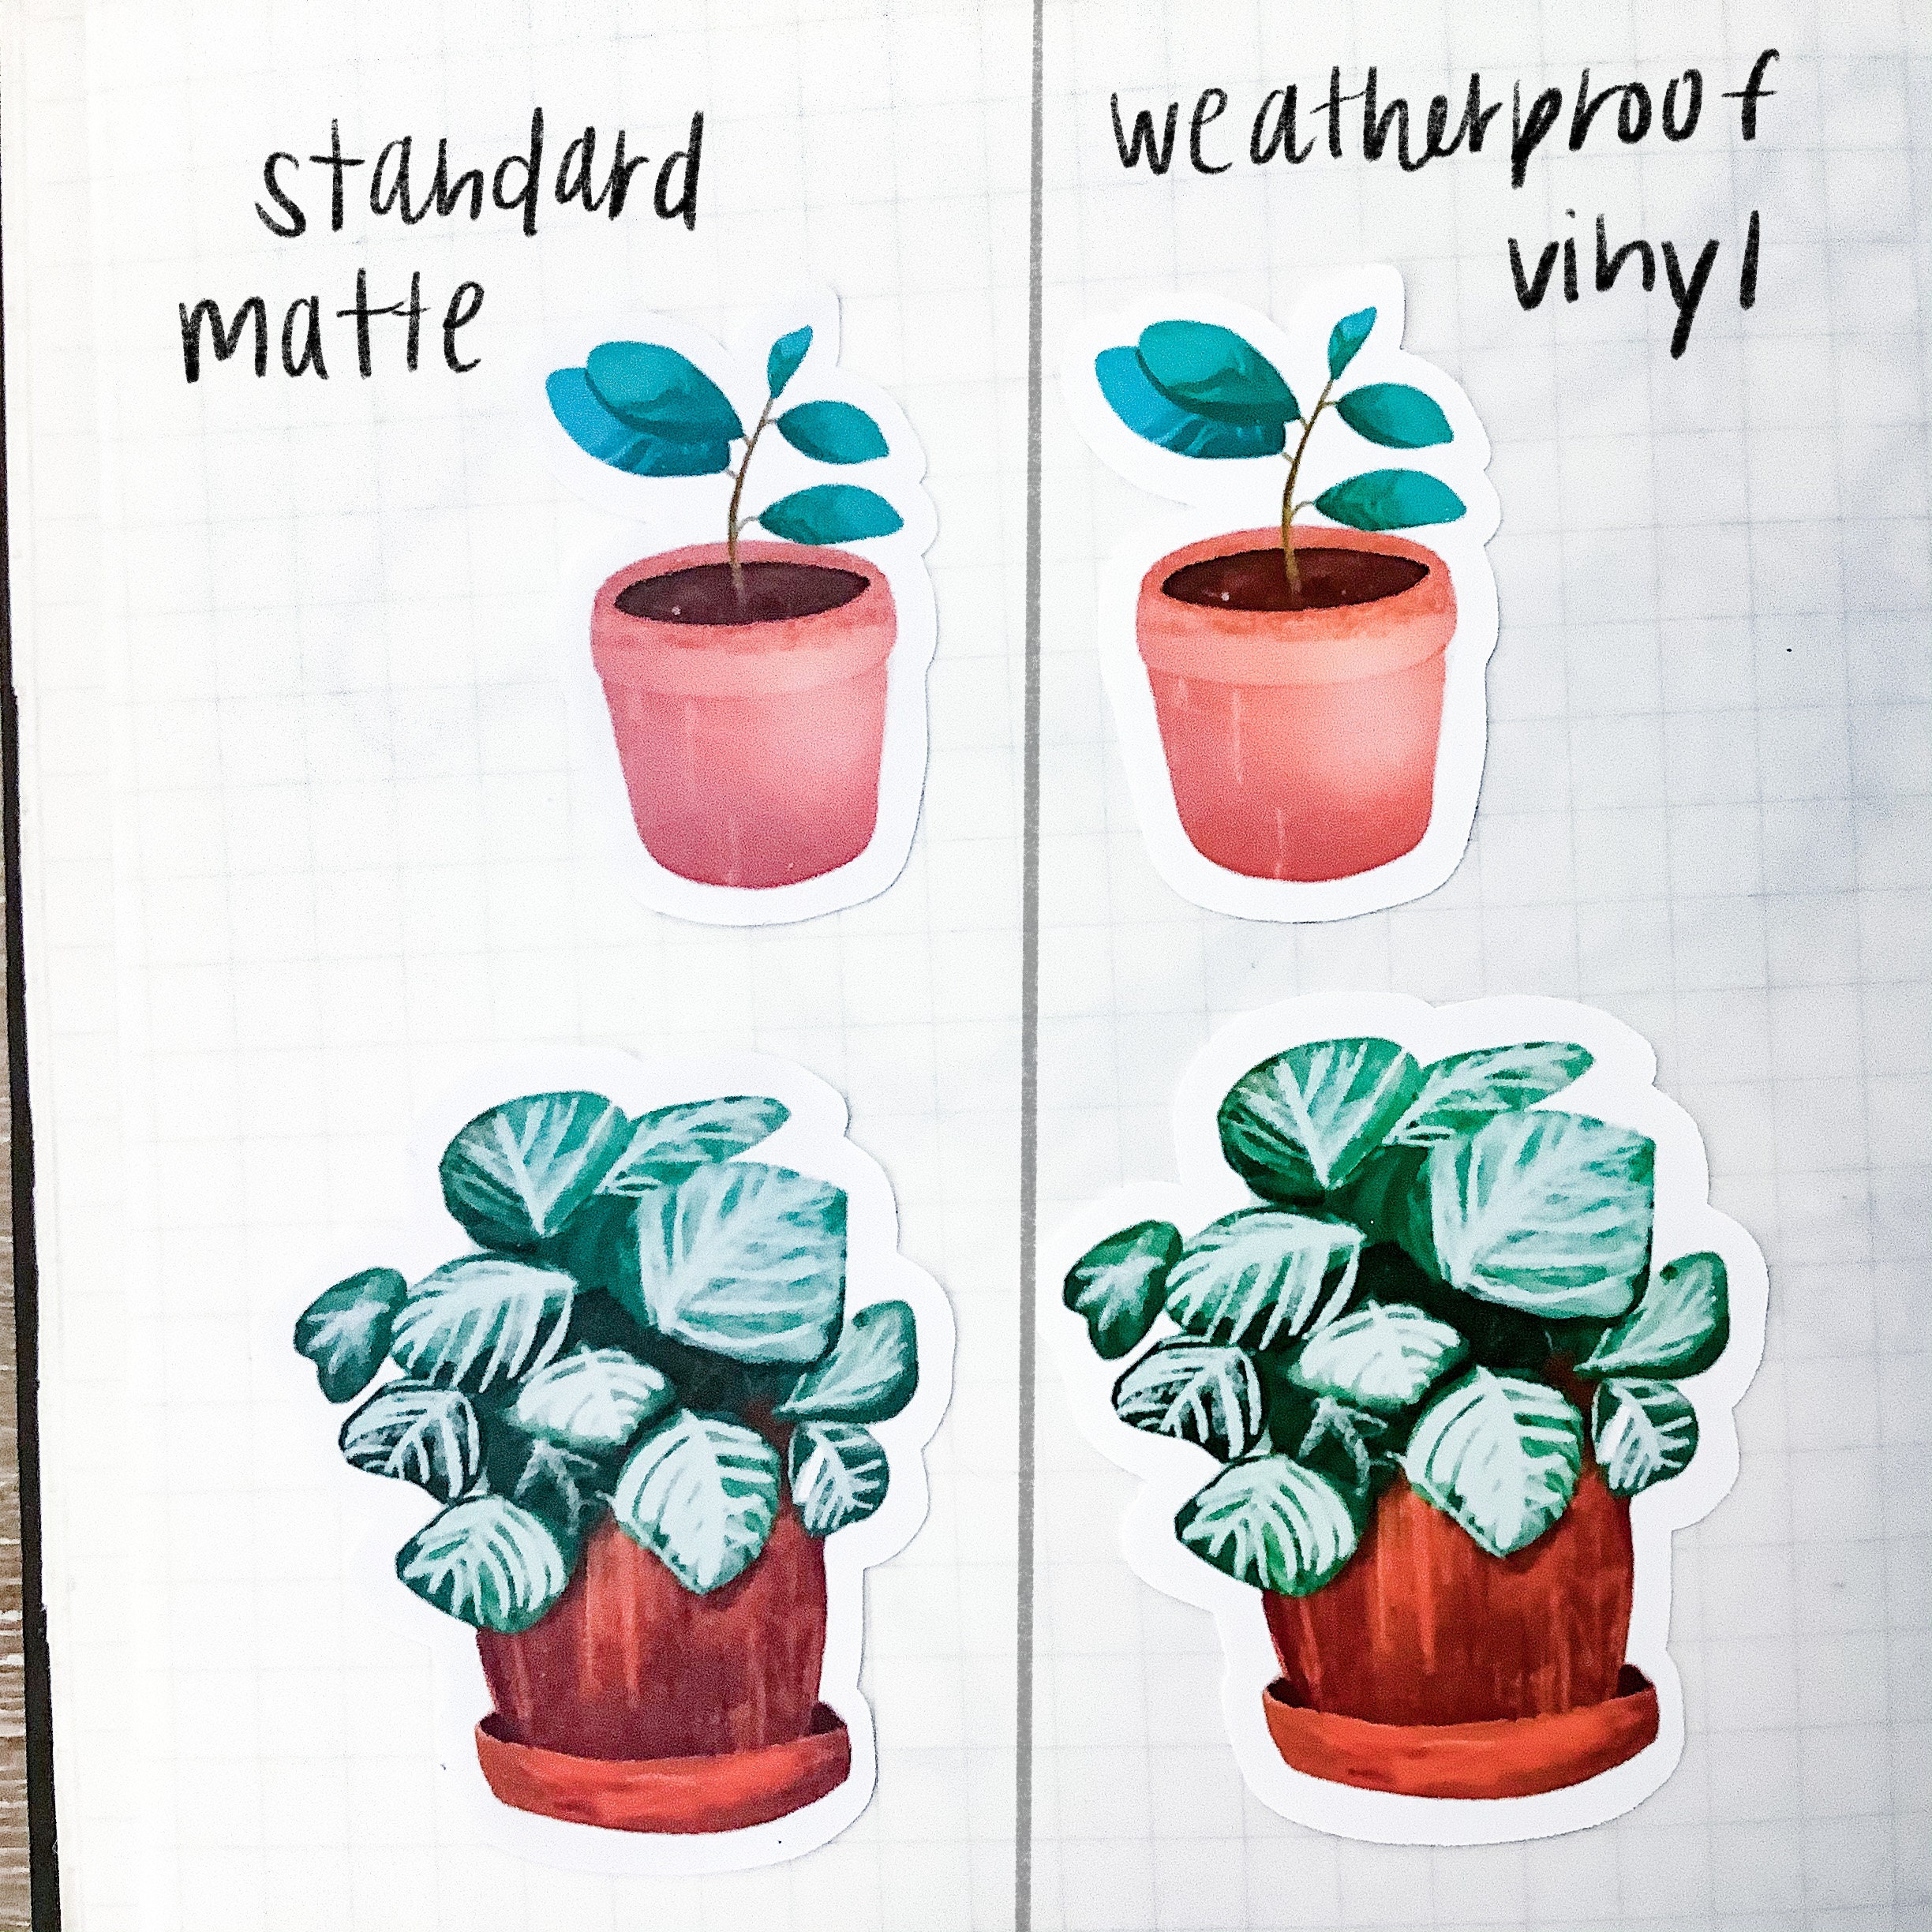 standard
matte
weatherproof
vinyl